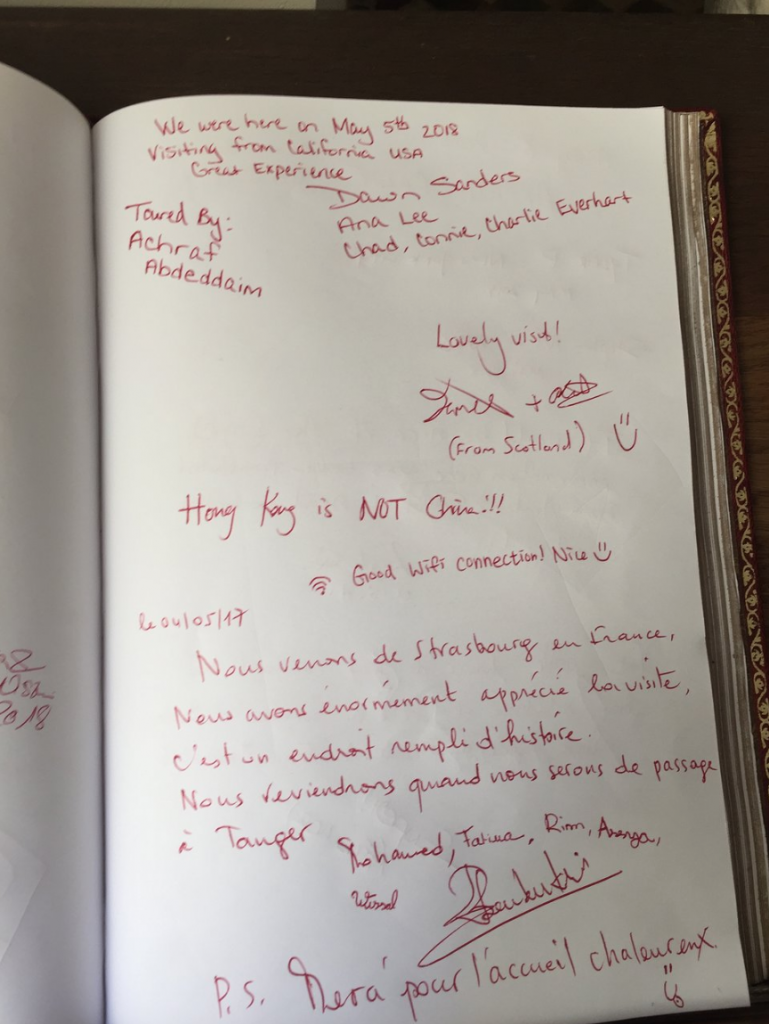 We were here on May 5th 2018
Visiting from California USA
Great Experience
Dawn Sanders
Ana Lee
Chad, Connie, Charlie Everhart
Toured By:
Achraf
Abdeddaim
Lovely visit!
+
(From Scotland)
Hong Kong is NOT China!!!
Good Wifi connection! Nice
le 04/05/17
Nous venons de Strasbourg en France,
Nous avons énormément apprécié la visite,
c'est un endroit rempli d'histoire.
Nous reviendrons quand nous serons de passage
à Tanger
Mohamed, Fatima, Rim,
P.S. pour l'accueil chaleureux
2018